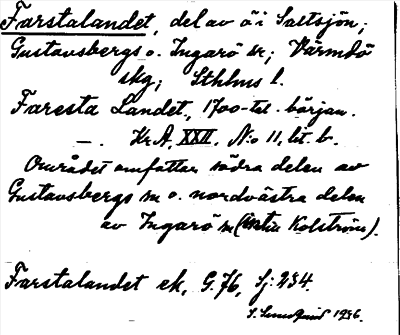 Farstalandet, del av ö i Saltsjön;
Gustavsbergs o. Ingarö kr; Värmdö
skg; Sthlms l.
Faresta Landet, 1700-tal. början.
—. Kr. A. XXII. N:o 11, lit. b.
Området omfattar södra delen av
Gustavsbergs sn o. nordvästra delen
av Ingarö sn (Kolström).
Farstalandet ek. G. 76, Sj: 234.
1936.